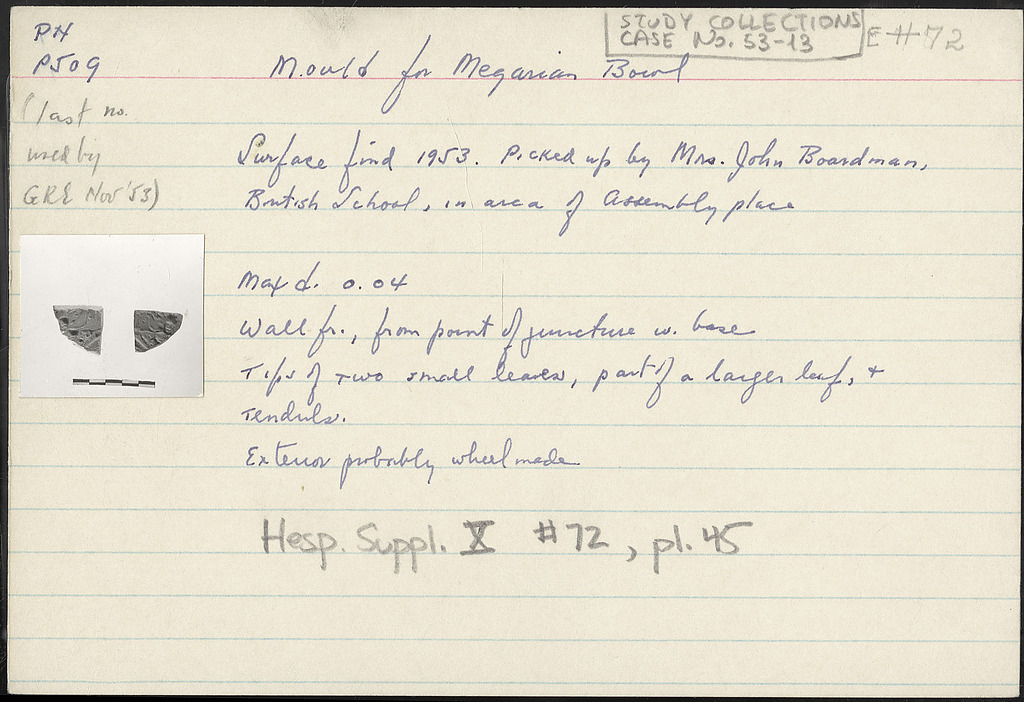 PN
P509
(last no.
used by
GRE Nov '53)
STUDY COLLECTIONS
CASE No. 53-13
E #72
Mould for Megarian Bowl
Surface find 1953. Picked up by Mrs. John Boardman,
British School, in area of Assembly place
Max d. 0.04
Wall fr., from point of juncture w. base
Tips of two small leaves, part of a larger leaf, +
tendrils.
Exterior probably wheelmade
Hesp. Suppl. X #72, pl. 45